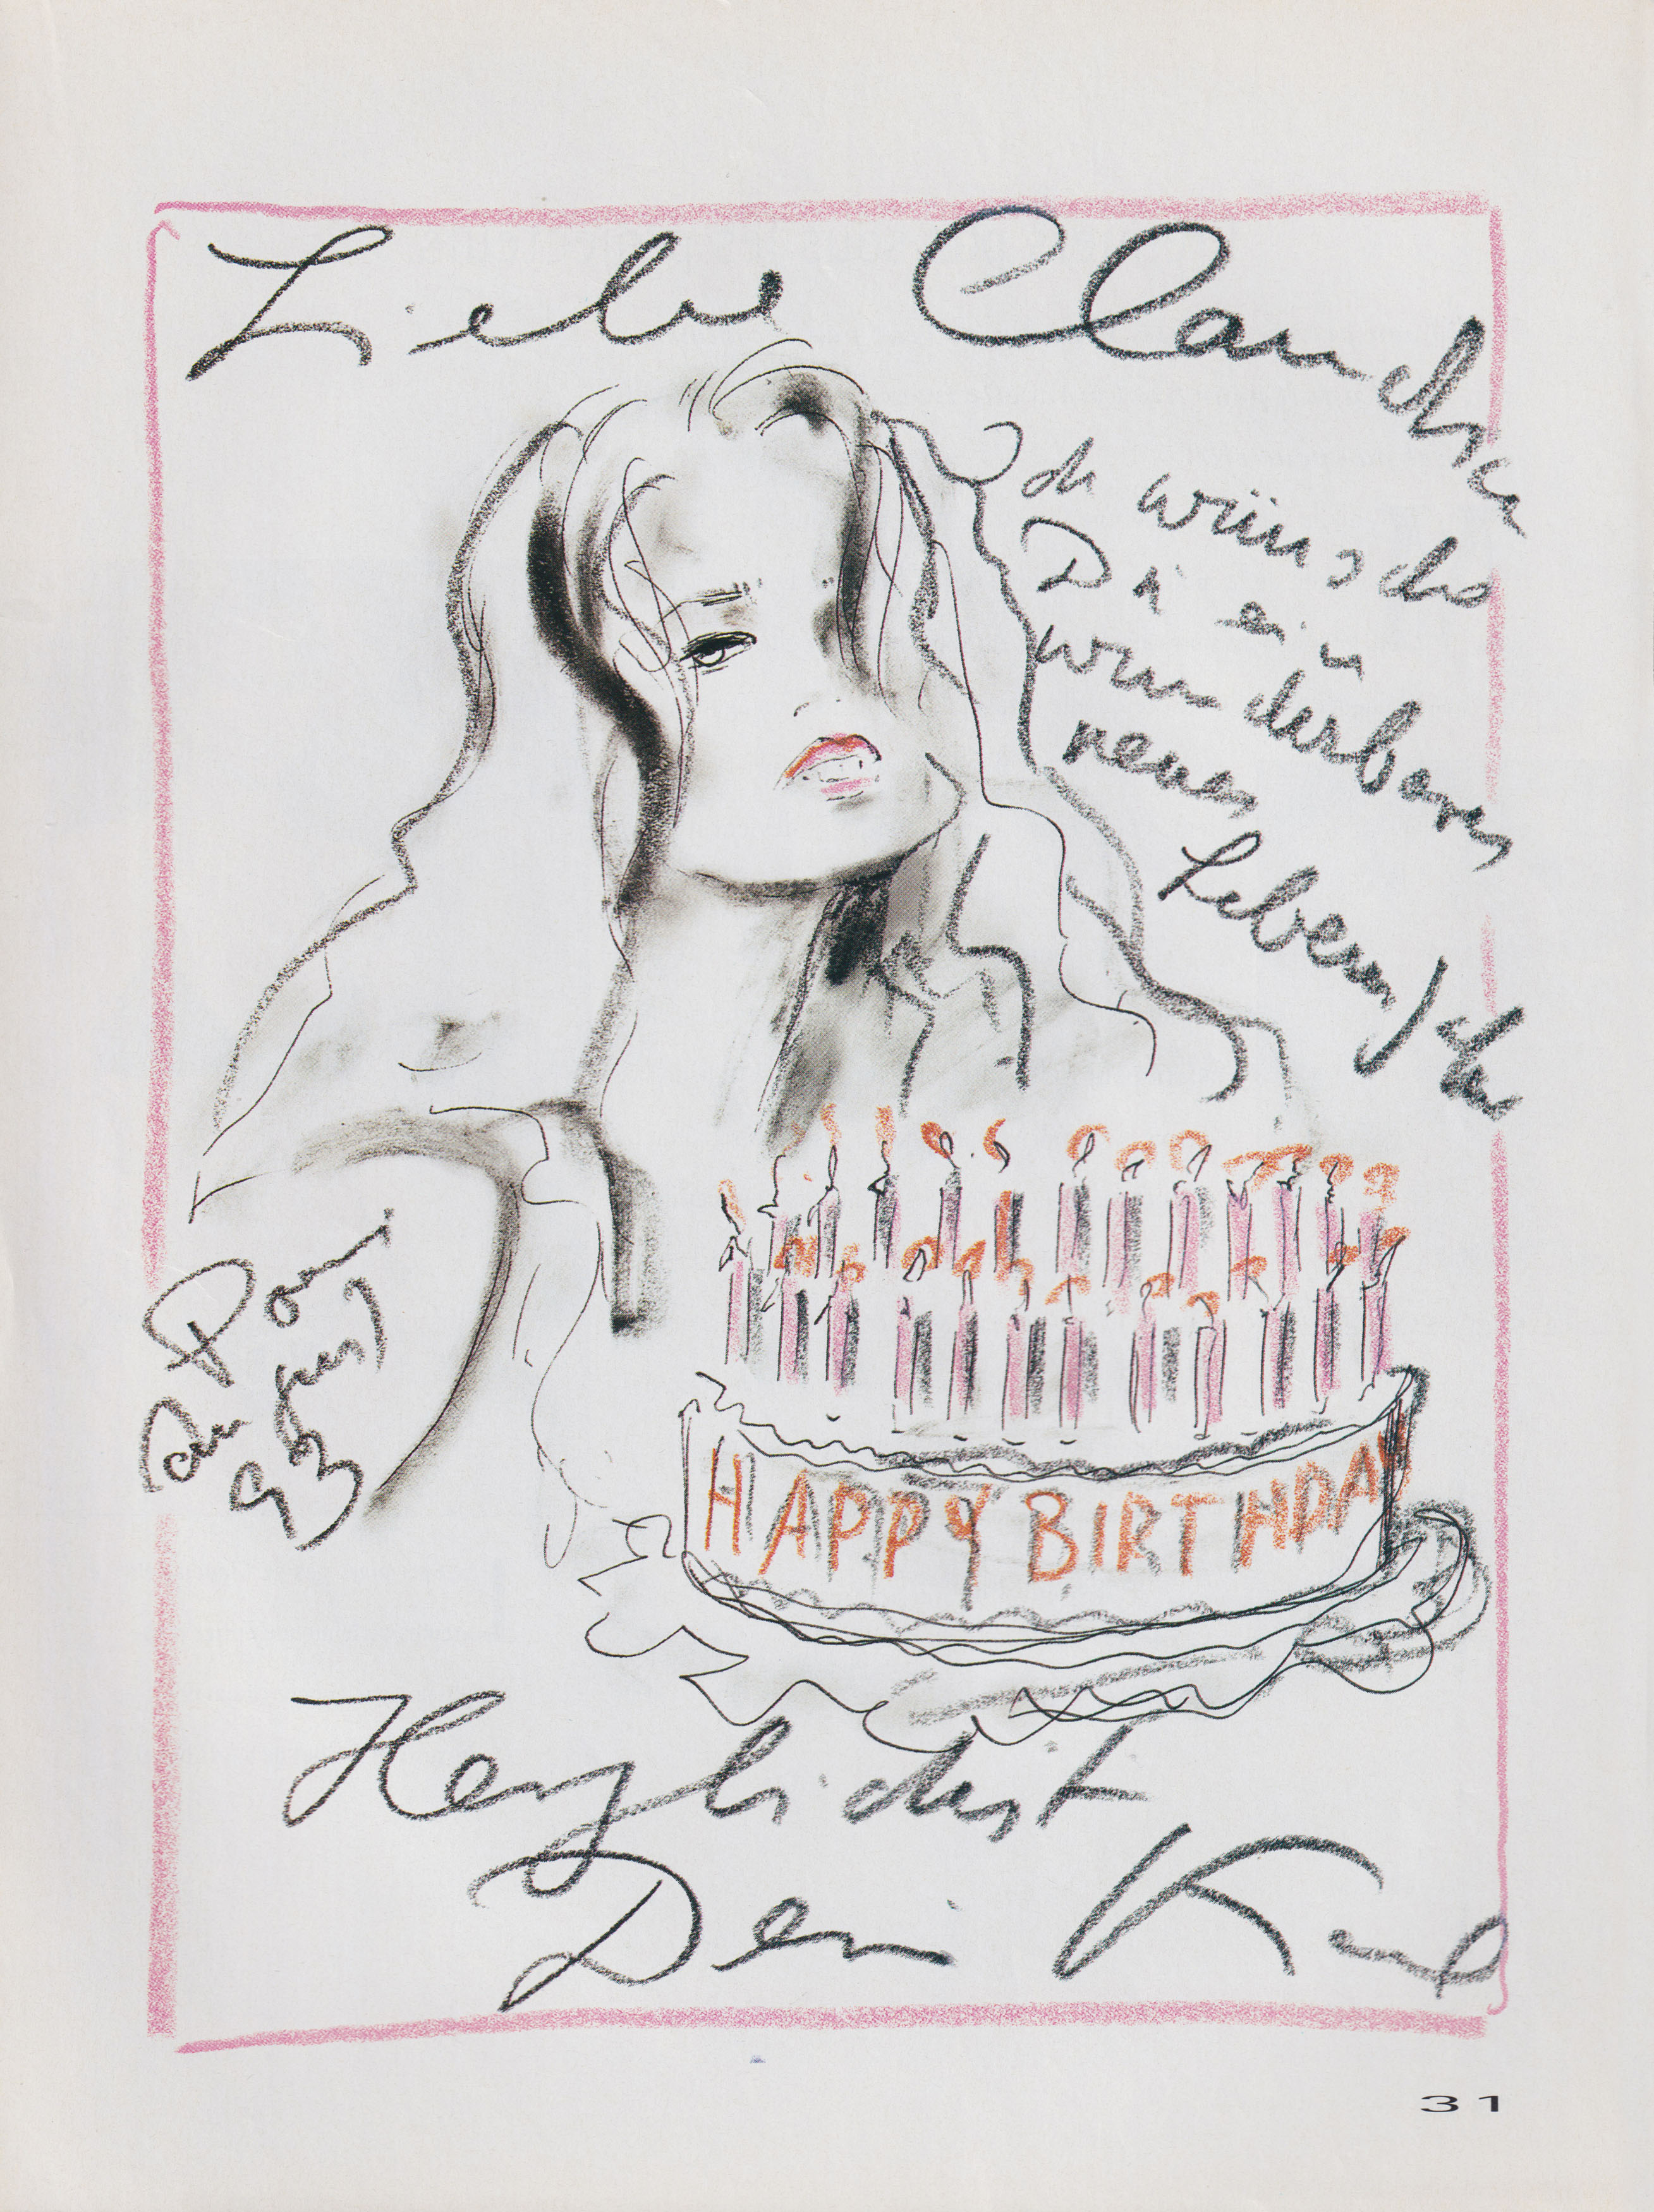 Liebe Claudia
Ich wünsche
Dir ein
wunderbares
neues
Lebensjahr
Paris
August
93
HAPPY BIRTHDAY
Herzlichst
Dein Karl
31